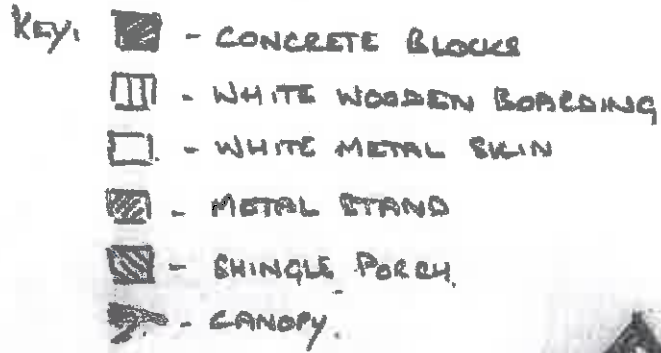 KEY:
- CONCRETE BLOCKS
- WHITE WOODEN BOARDING
- WHITE METAL SKIN
- METAL STAND
- SHINGLE PORCH.
- CANOPY.